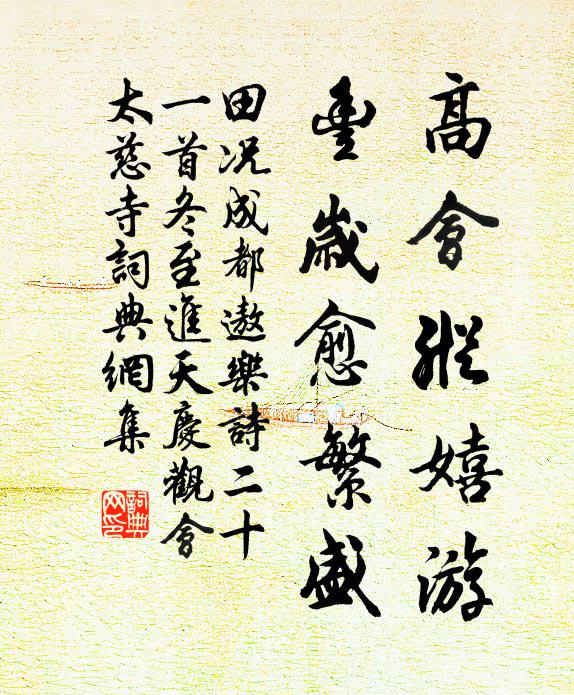 高會縱嬉游
豊歲愈繁盛
田况成都遨樂詩二十
一首冬至進天慶觀會
太慈寺詞典網集
詞典网印